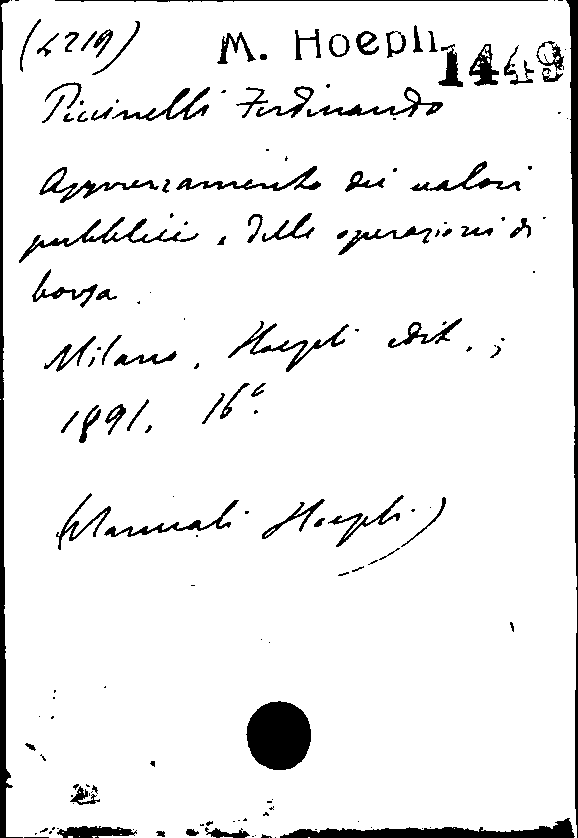 (4219) M. Hoepli 1449
Piccinelli Ferdinando
Apprezzamento dei valori
pubblici e delle operazioni di
borsa.
Milano, Hoepli edit.,
1891. 16°.
(Manuali Hoepli)